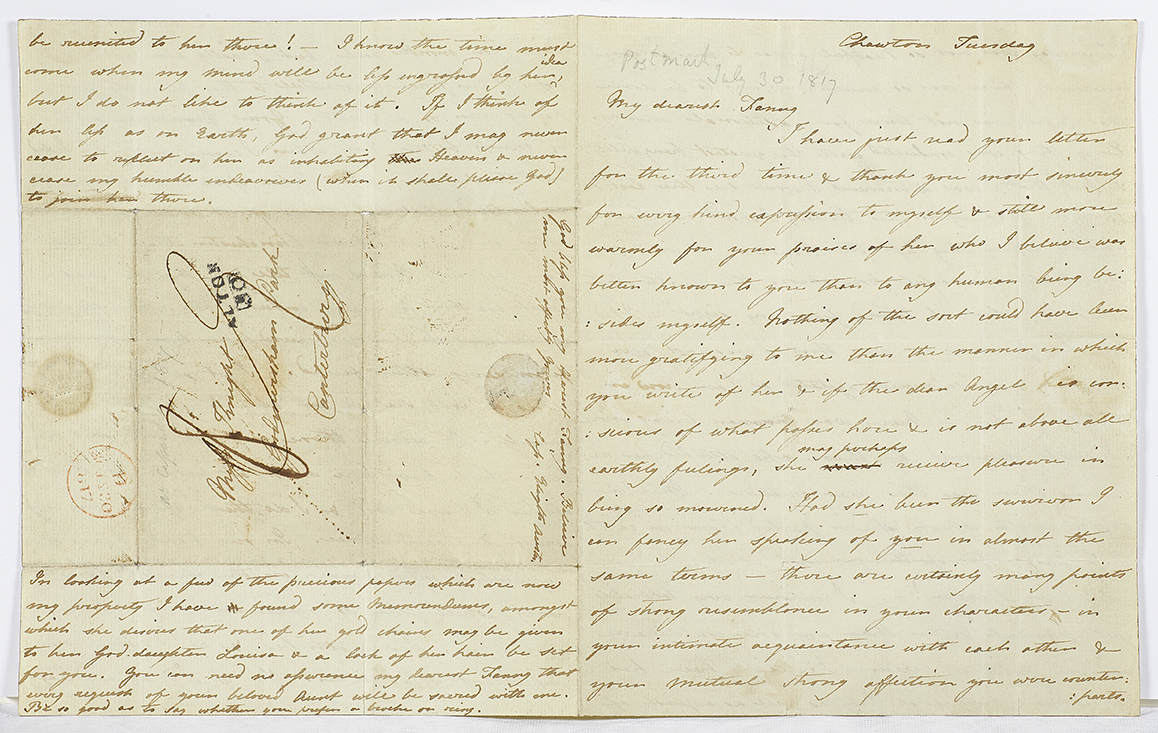 Chawton Tuesday
Postmark
July 30 1817
My dearest Fanny
I have just read your letter
for the third time & thank you most sincerely
for every kind expression to myself & still more
warmly for your praises of her who I believe was
better known to you than to any human being be:
:sides myself. Nothing of the sort could have been
more gratifying to me than the manner in which
you write of her & if the dear Angel is con:
:scious of what passes here & is not above all
may perhaps
earthly feelings, she receive pleasure in
being so mourned. Had she been the survivor I
can fancy her speaking of you in almost the
same terms — there are certainly many points
of strong resemblance in your characters — in
your intimate acquaintance with each other &
your mutual strong affection you were counter:
:parts.
be reunited to her there! — I know the time must
idea
come when my mind will be less engrossed by her,
but I do not like to think of it. If I think of
her less as on Earth, God grant that I may never
cease to reflect on her as inhabiting Heaven & never
cease my humble endeavours (when it shall please God)
to join her there.
Miss Knight
Godmersham Park
Canterbury
ALTON
8
30
1817
God bless you my dearest Fanny. Believe
me most affectly yours
Cass. Elizth Austen
In looking at a few of the precious papers which are now
my property I have found some Memorandums, amongst
which she desires that one of her gold chains may be given
to her God-daughter Louisa & a lock of her hair be set
for you. You can need no assurance my dearest Fanny that
every request of your beloved Aunt will be sacred with me.
Be so good as to say whether you prefer a broche or ring.